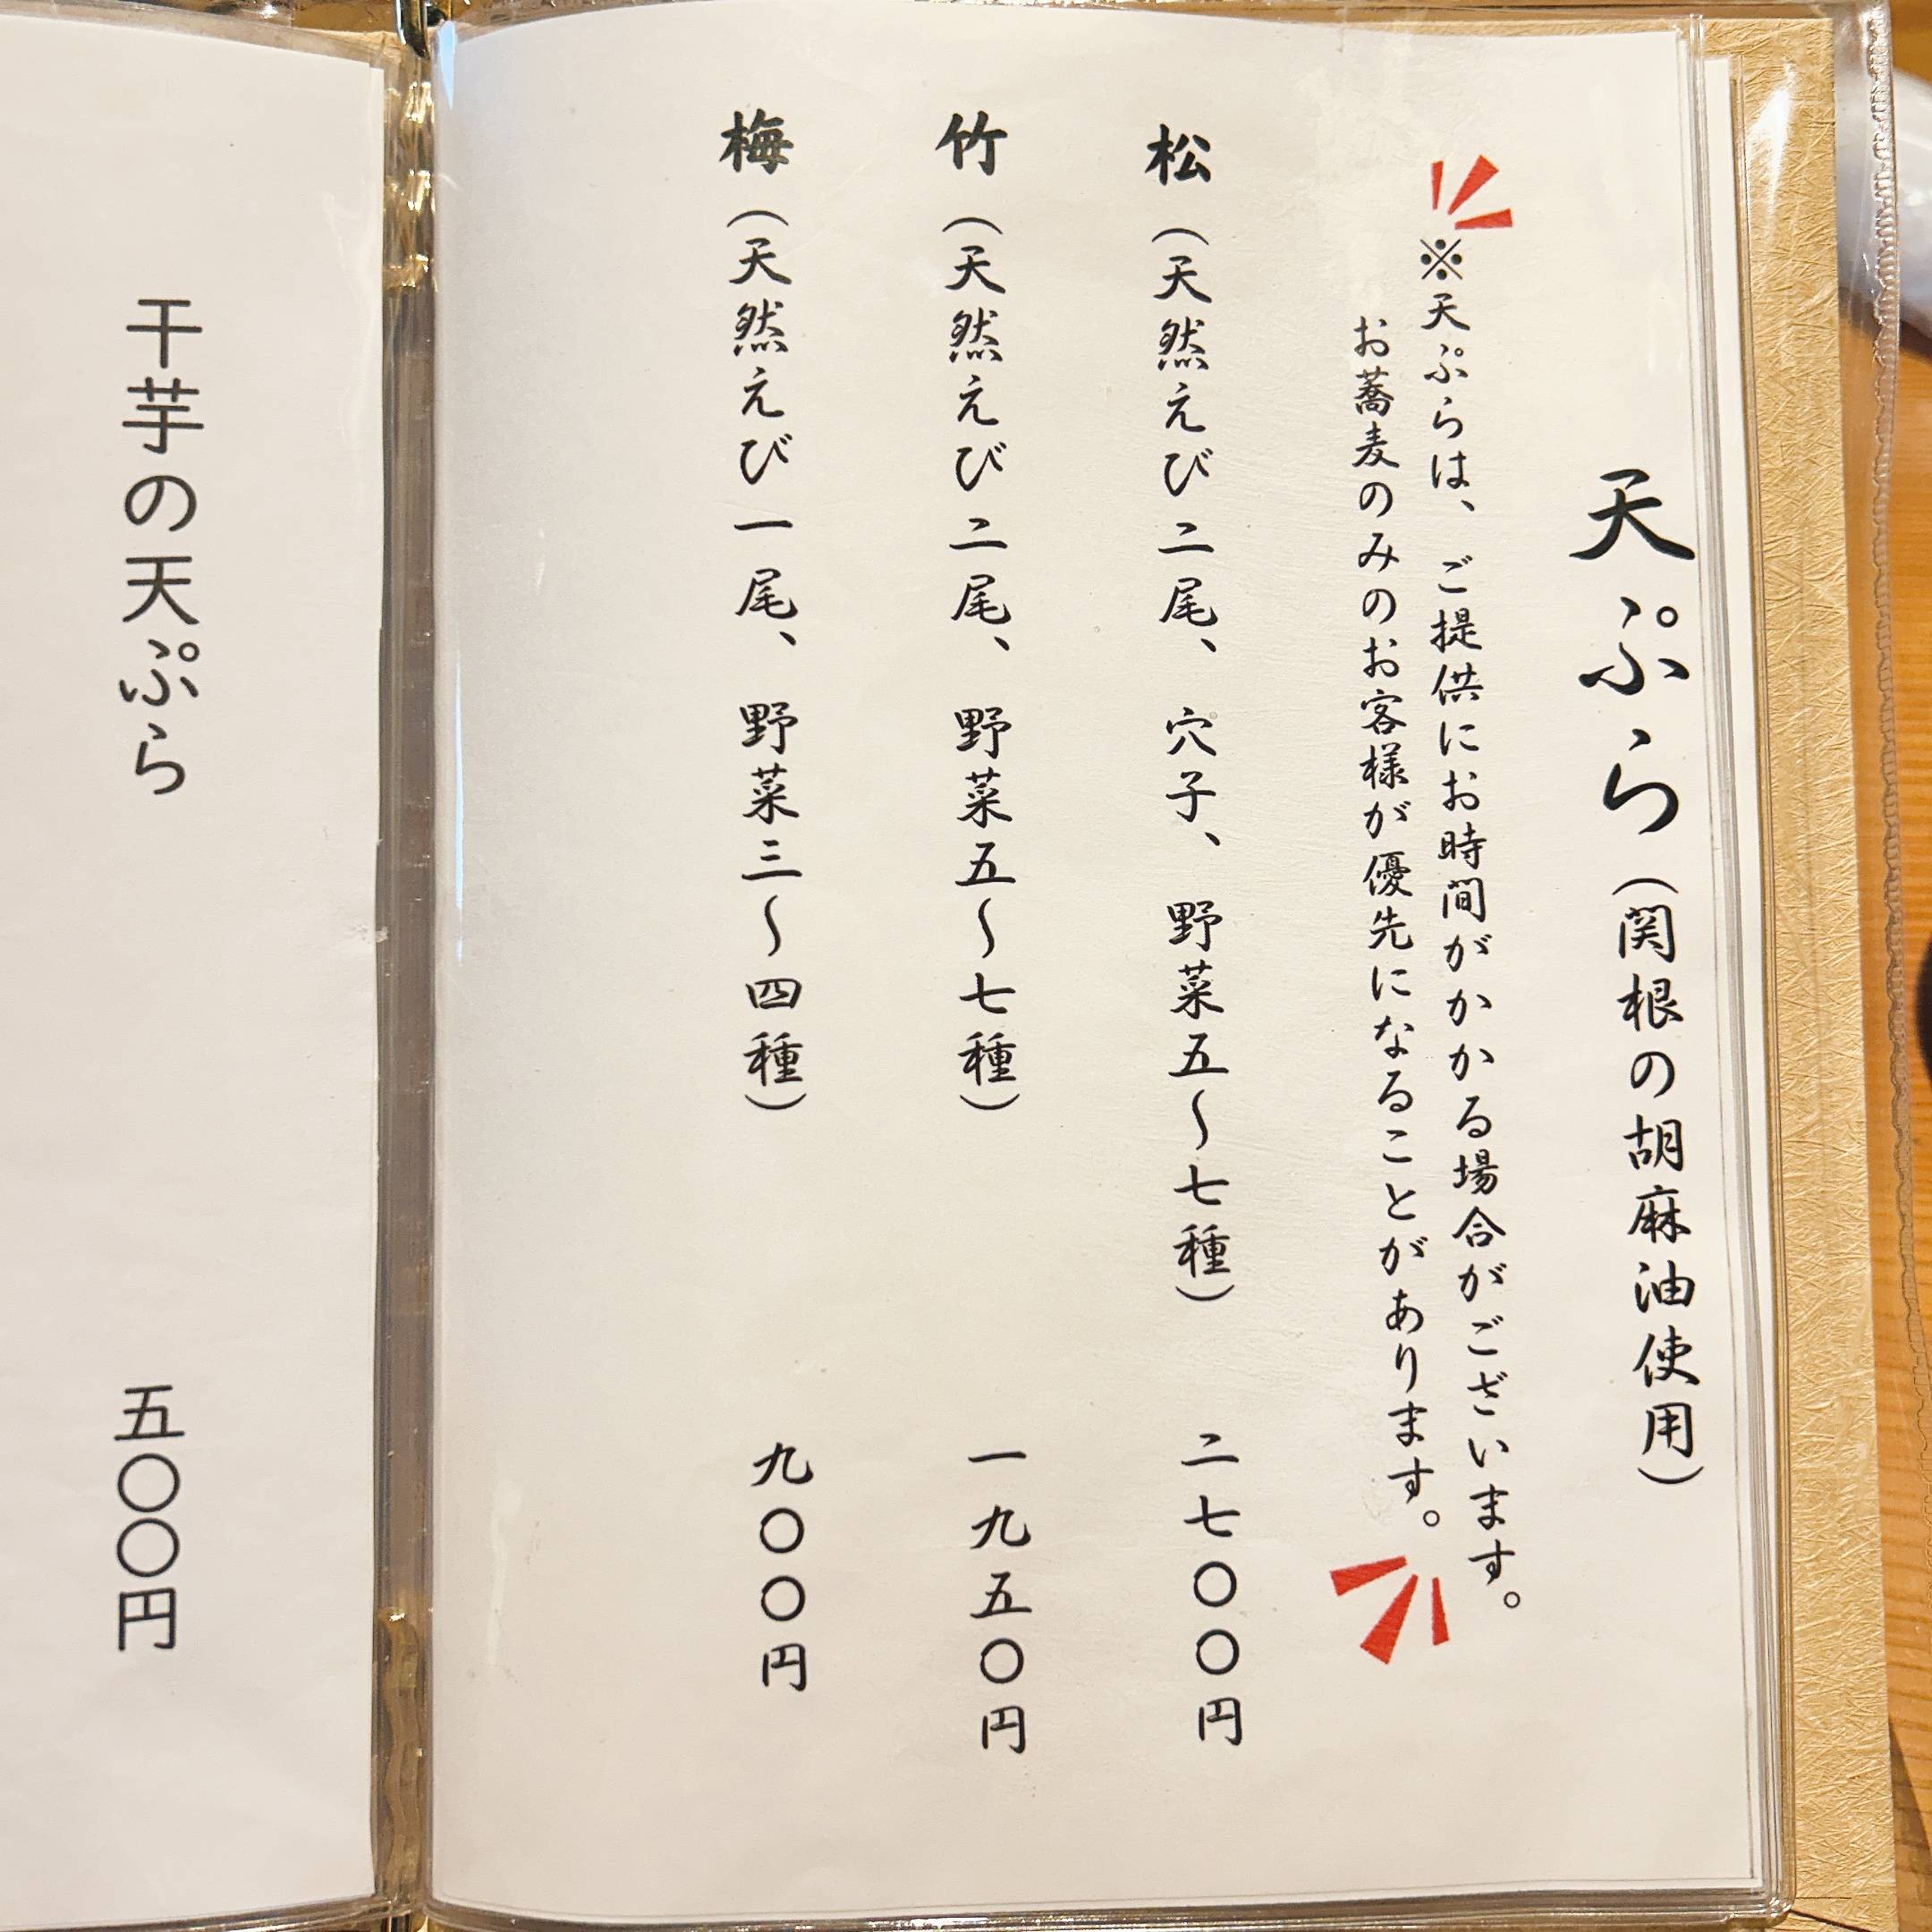 天ぷら(関根の胡麻油使用)
※天ぷらは、ご提供にお時間がかかる場合がございます。
お蕎麦のみのお客様が優先になることがあります。
松(天然えび二尾、穴子、野菜五〜七種) 二七〇〇円
竹(天然えび二尾、野菜五〜七種) 一九五〇円
梅(天然えび一尾、野菜三〜四種) 九〇〇円
干芋の天ぷら 五〇〇円